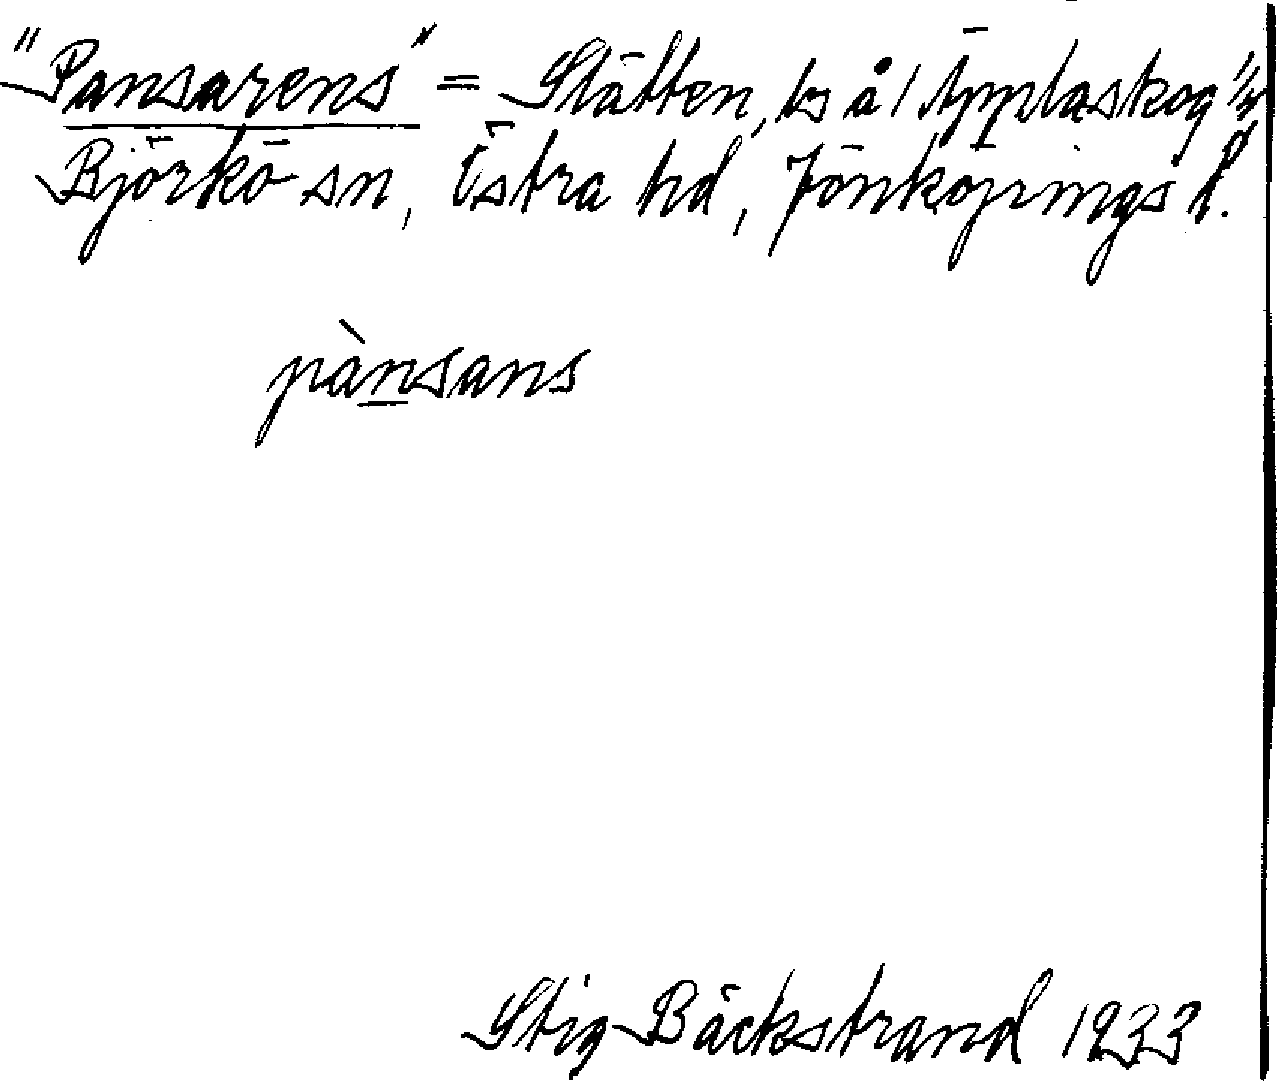 "Pansarens" = Slätten, bs å 1 Äpplaskog 1/4
Björkö sn, Östra hd, Jönköpings l.
pànsans
Stig Bäckstrand 1933